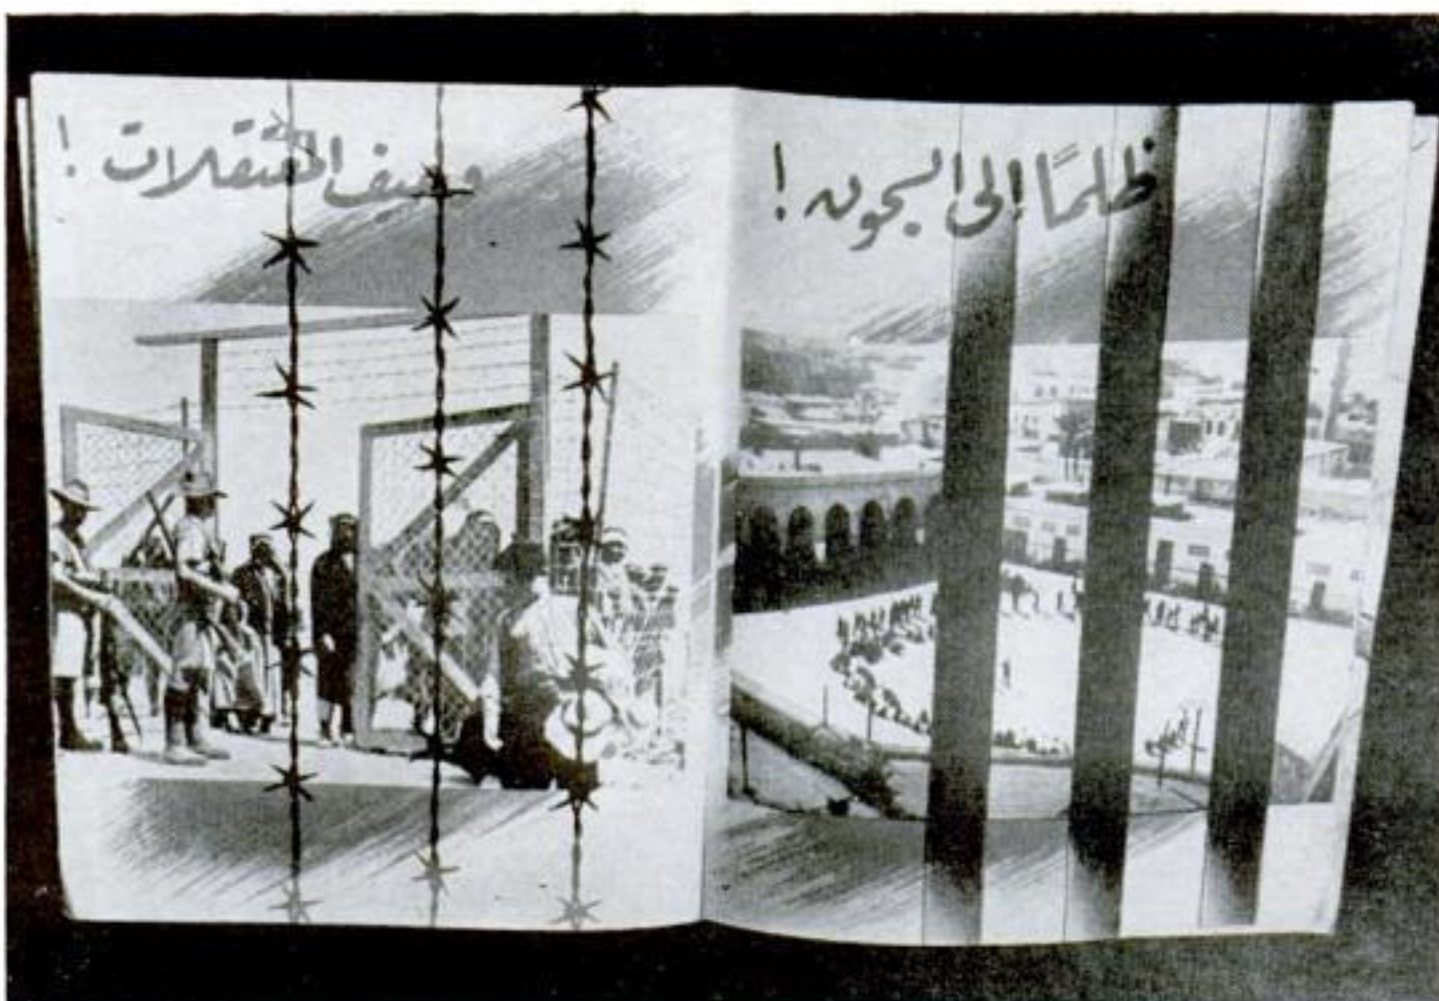 ظلمًا إلى السجون !
وصيف المعتقلات !